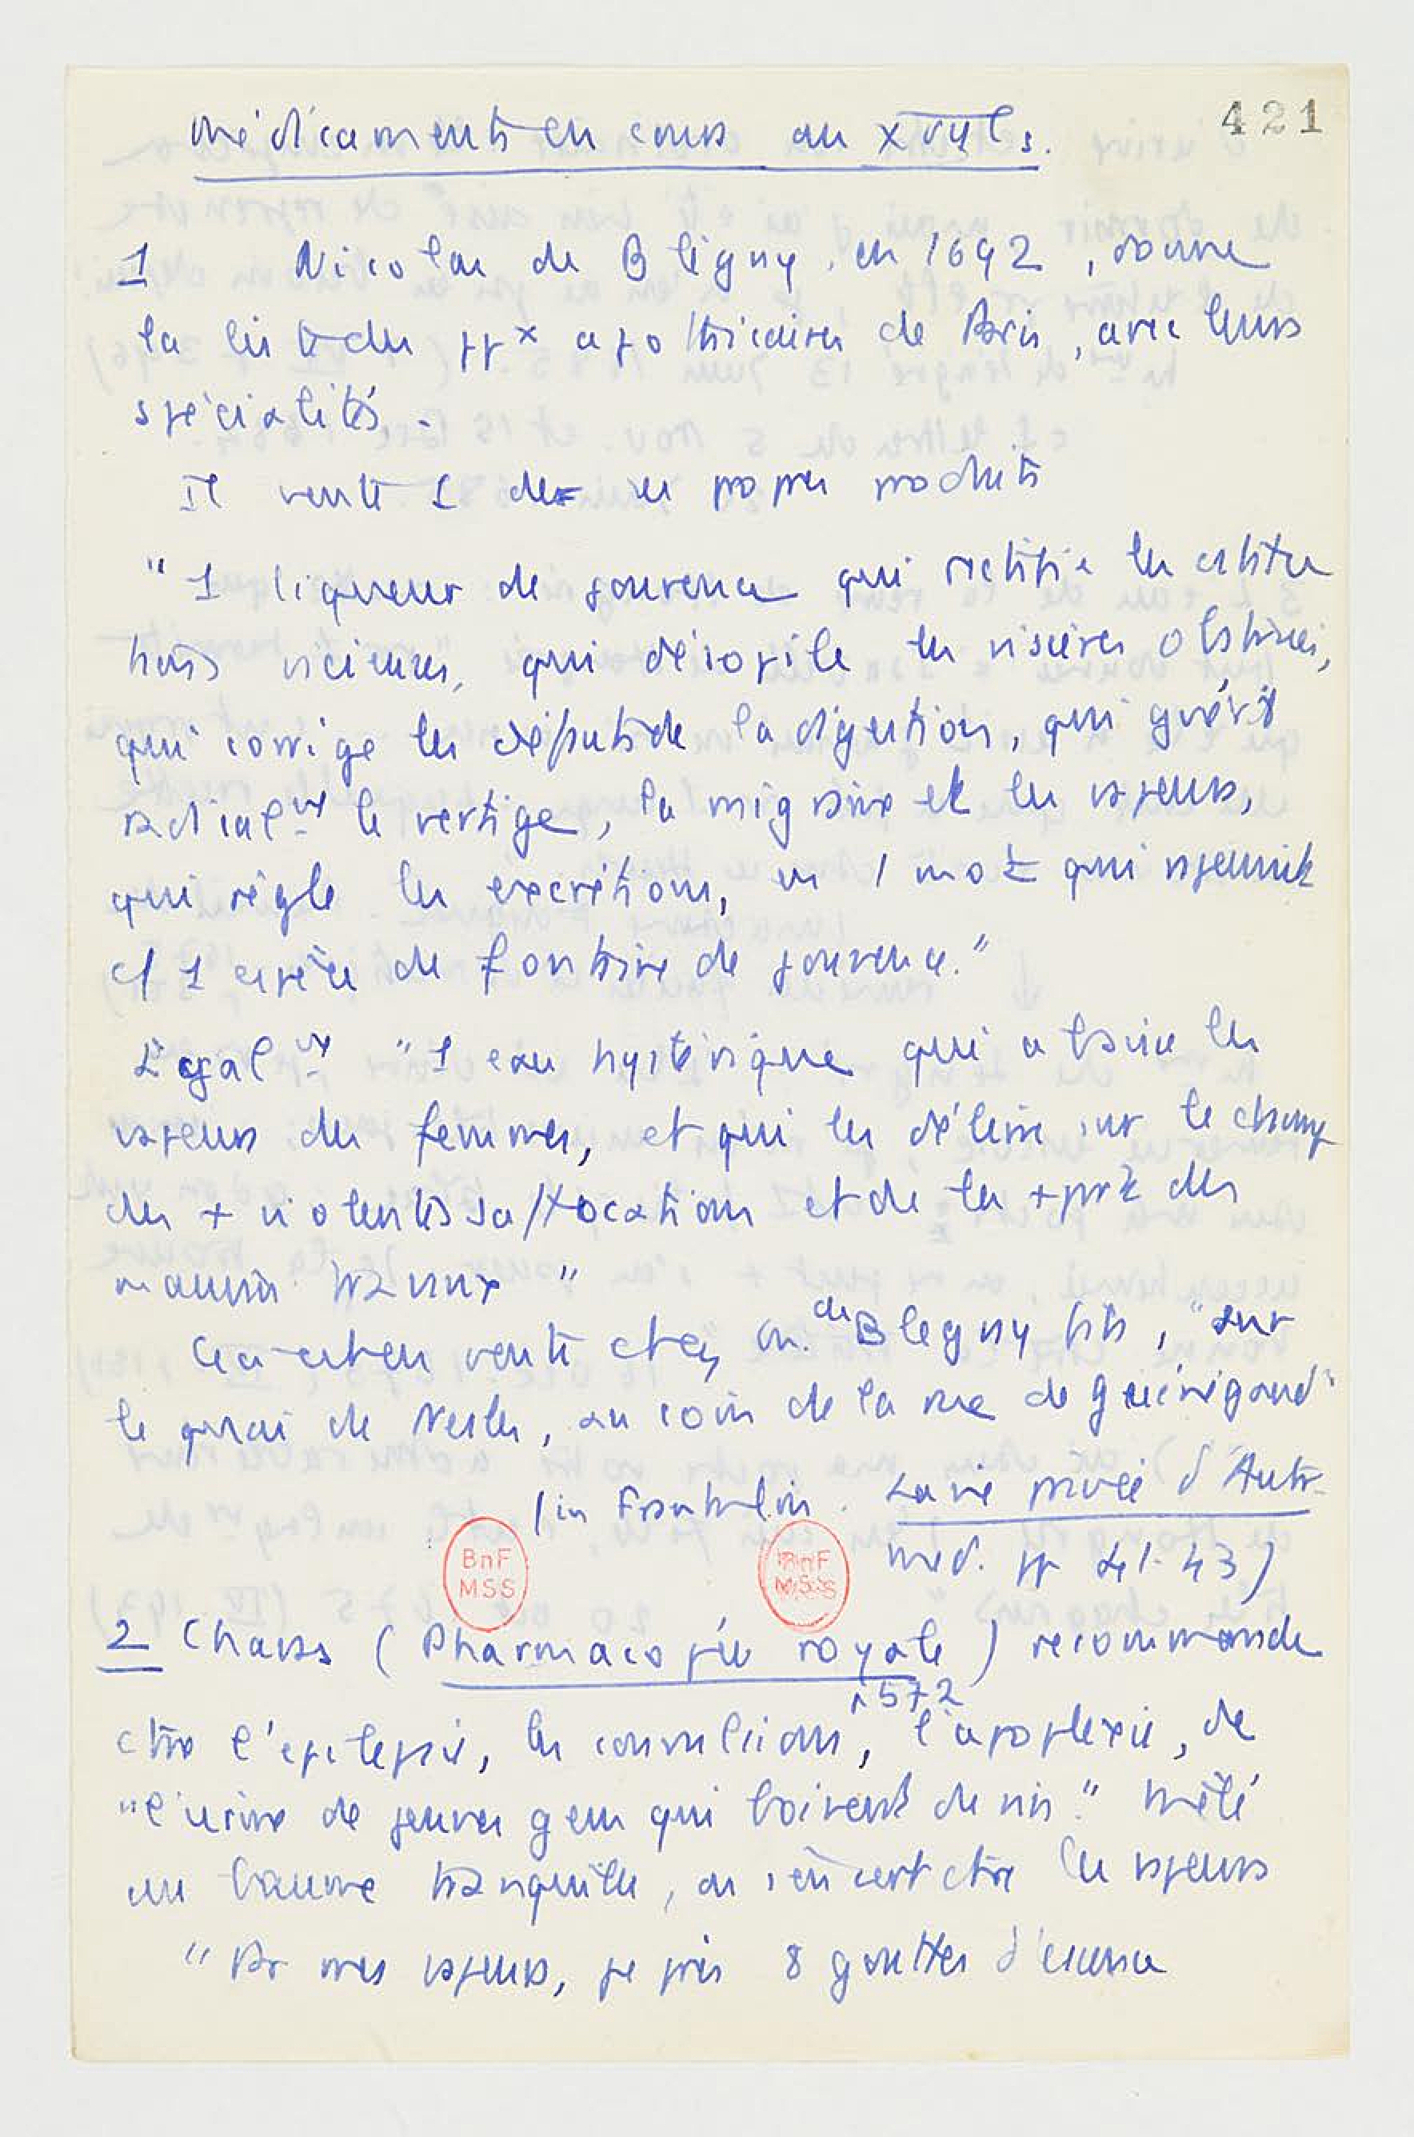 421
Médicaments en cours au XVII s.
1 Nicolas de Bligny, en 1692, donne
la liste des ppx apothicaires de Paris, avec leurs
spécialités.
Il vente 1 des ses propres produits
"1 liqueur de jouvence qui rectifie les estoma
hors vicieux, qui désopile les viscères obstrués,
qui corrige les défauts de la digestion, qui guérit
radicalmt le vertige, la migraine et les vapeurs,
qui règle les excrétions, en 1 mot qui rajeunit
et 1 espèce de fontaine de jouvence."
Egalmt "1 eau hystérique qui abaisse les
vapeurs des femmes, et qui les délivre sur le champ
des + violentes suffocations et de les + part des
mauvais
Ceci est en vente chez M. de Blegny fils, "sur
le quai de Nesles, au coin de la rue de Guénégaud"
(in Franklin. La vie privée d'Autr.
Med. pp 41-43)
BnF
MSS
BnF
MSS
2 Charas (Pharmacopée royale) recommande
p 572
ctre l'epilepsie, les convulsions, l'apoplexie, de
"l'urine de jeunes gens qui boivent du vin." Mêlé
au baume tranquille, on s'en sert ctre les vapeurs
"Pr mes vapeurs, je pris 8 gouttes d'essence